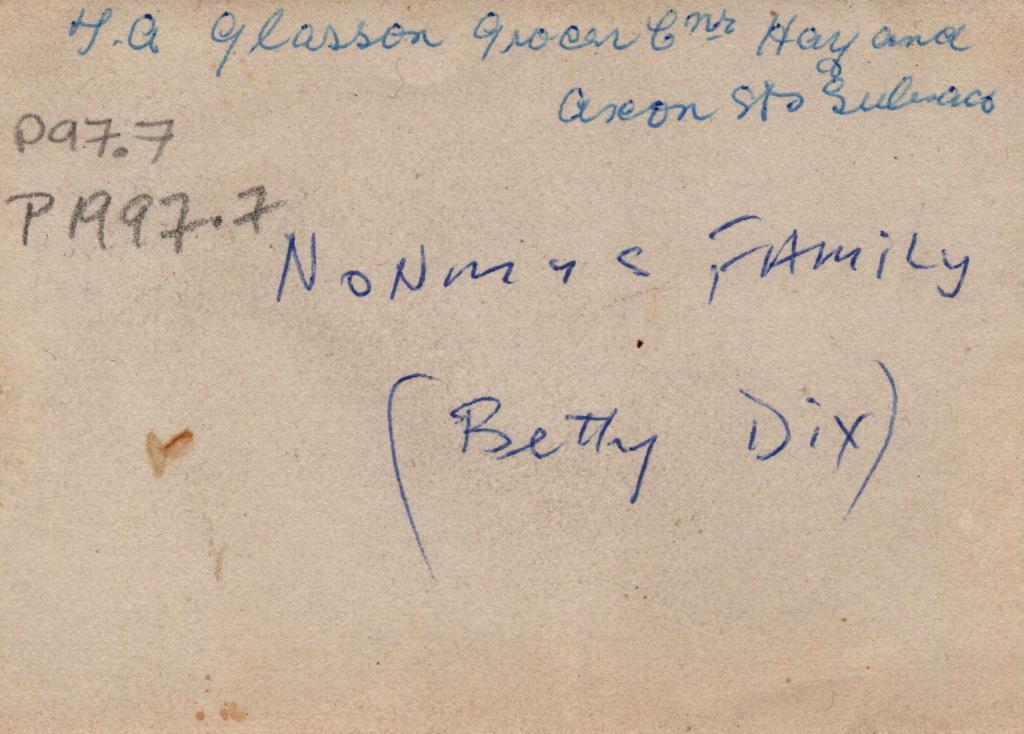 T.A Glasson Grocer Cnr Hay and
Axon Sts Subiaco
P97.7
P1997.7
Family
(Betty Dix)